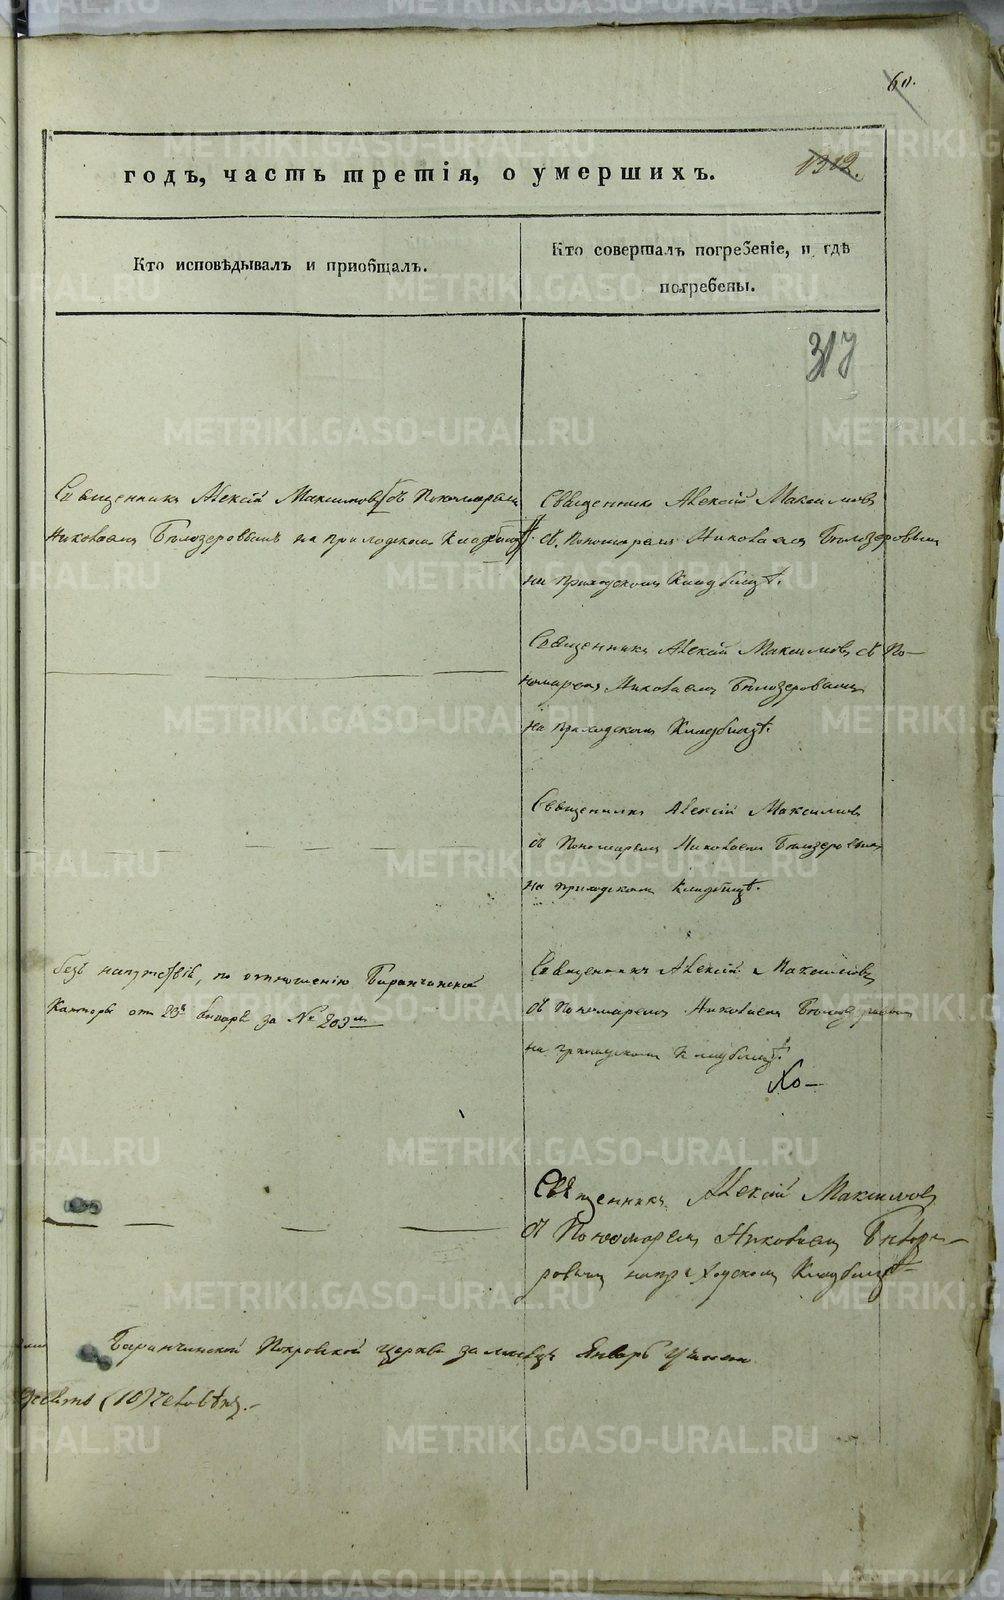 60.
1312.
годъ, часть третія, о умершихъ.
Кто исповѣдывалъ и пріобщалъ.
Кто совершалъ погребеніе, и гдѣ
погребены.
317
Священникъ Алексій Максимовъ съ Пономаремъ
Николаемъ Бѣлозеровымъ на приходскомъ кладбищѣ.
Священникъ Алексій Максимовъ
съ Пономаремъ Николаемъ Бѣлозеровымъ
на приходскомъ кладбищѣ.
Священникъ Алексій Максимовъ съ По-
номаремъ Николаемъ Бѣлозеровымъ
на приходскомъ кладбищѣ.
Священникъ Алексій Максимовъ
съ Пономаремъ Николаемъ Бѣлозеровымъ
на приходскомъ кладбищѣ.
безъ напутствія, по отношенію Баранчинской
Канторы от 23го Января за № 203м
Священникъ Алексій Максимовъ
съ Пономаремъ Николаемъ Бѣлозеровымъ
на приходскомъ кладбищѣ.
Священникъ Алексій Максимовъ
съ Пономаремъ Николаемъ Бѣлозе-
ровымъ на приходскомъ кладбищѣ
Баранчинской Покровской церкви за месяцъ Январь
(10) человѣкъ.
METRIKI.GASO-URAL.RU